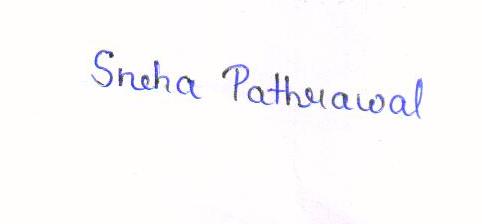 Sneha Pathrawal